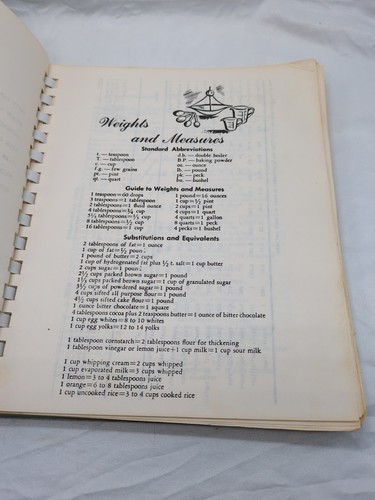 Weights
and Measures
Standard Abbreviations
t. — teaspoon
T. — tablespoon
c. — cup
f.g. — few grains
pt. — pint
qt. — quart
d.b. — double boiler
B.P. — baking powder
oz. — ounce
lb. — pound
pk. — peck
bu. — bushel
Guide to Weights and Measures
1 teaspoon=60 drops
3 teaspoons=1 tablespoon
2 tablespoons=1 fluid ounce
4 tablespoons=¼ cup
5⅓ tablespoons=⅓ cup
8 tablespoons=½ cup
16 tablespoons=1 cup
1 pound=16 ounces
1 cup=½ pint
2 cups=1 pint
4 cups=1 quart
4 quarts=1 gallon
8 quarts=1 peck
4 pecks=1 bushel
Substitutions and Equivalents
2 tablespoons of fat=1 ounce
1 cup of fat=½ pound
1 pound of butter=2 cups
1 cup of hydrogenated fat plus ½ t. salt=1 cup butter
2 cups sugar=1 pound
2½ cups packed brown sugar=1 pound
1⅓ cups packed brown sugar=1 cup of granulated sugar
3½ cups of powdered sugar=1 pound
4 cups sifted all purpose flour=1 pound
4½ cups sifted cake flour=1 pound
1 ounce bitter chocolate=1 square
4 tablespoons cocoa plus 2 teaspoons butter=1 ounce of bitter chocolate
1 cup egg whites=8 to 10 whites
1 cup egg yolks=12 to 14 yolks
1 tablespoon cornstarch=2 tablespoons flour for thickening
1 tablespoon vinegar or lemon juice+1 cup milk=1 cup sour milk
1 cup whipping cream=2 cups whipped
1 cup evaporated milk=3 cups whipped
1 lemon=3 to 4 tablespoons juice
1 orange=6 to 8 tablespoons juice
1 cup uncooked rice=3 to 4 cups cooked rice